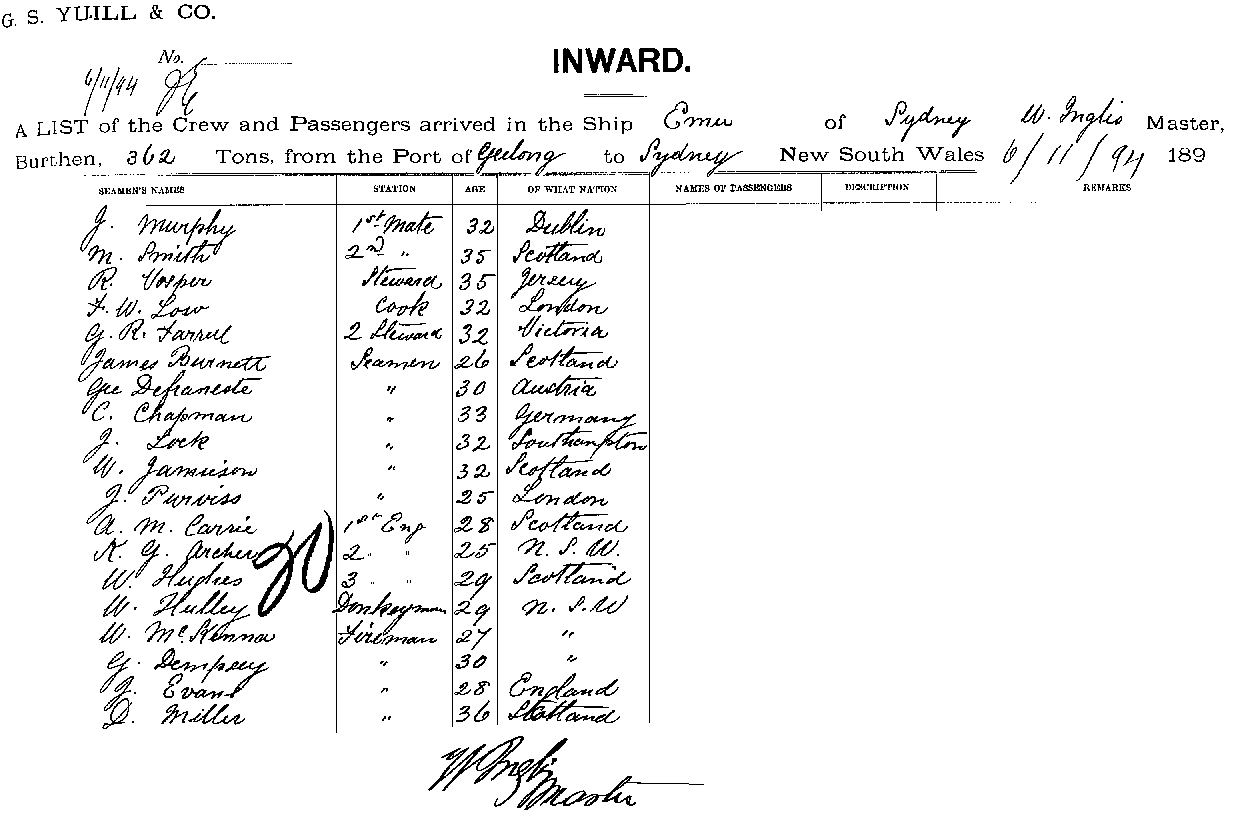 G. S. YUILL & CO.
No.
6/11/94
INWARD.
A LIST of the Crew and Passengers arrived in the Ship Emu of Sydney W. Inglis Master,
Burthen, 362 Tons, from the Port of Geelong to Sydney New South Wales 6/11/94 189
SEAMEN'S NAMES STATION AGE OF WHAT NATION NAMES OF PASSENGERS DESCRIPTION REMARKS
J. Murphy 1st Mate 32 Dublin
M. Smith 2nd " 35 Scotland
R. Vosper Steward 35 Jersey
F. W. Low Cook 32 London
G. R. Farrell 2 Steward 32 Victoria
James Burnett Seamen 26 Scotland
Defraneste " 30 Austria
C. Chapman " 33 Germany
J. Lock " 32 Southampton
W. Jamieson " 32 Scotland
J. Purviss " 25 London
A. M. Carrie 1st Eng 28 Scotland
K. G. Archer 2 " " 25 N. S. W.
W. Hughes 3 " " 29 Scotland
20
W. Hulley Donkeyman 29 N. S. W
W. McKenna Fireman 27 "
G. Dempsey " 30 "
J. Evans " 28 England
D. Miller " 36 Scotland
W Inglis
Master